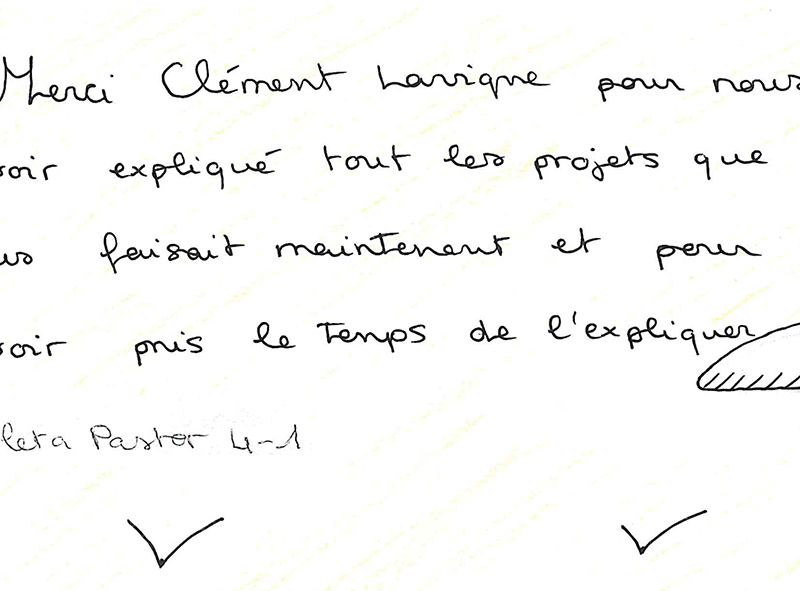 Merci Clément Lavigne pour nous
oir expliqué tout les projets que
us faisait maintenant et pour
oir pris le temps de l'expliquer
leta Pastor 4-1